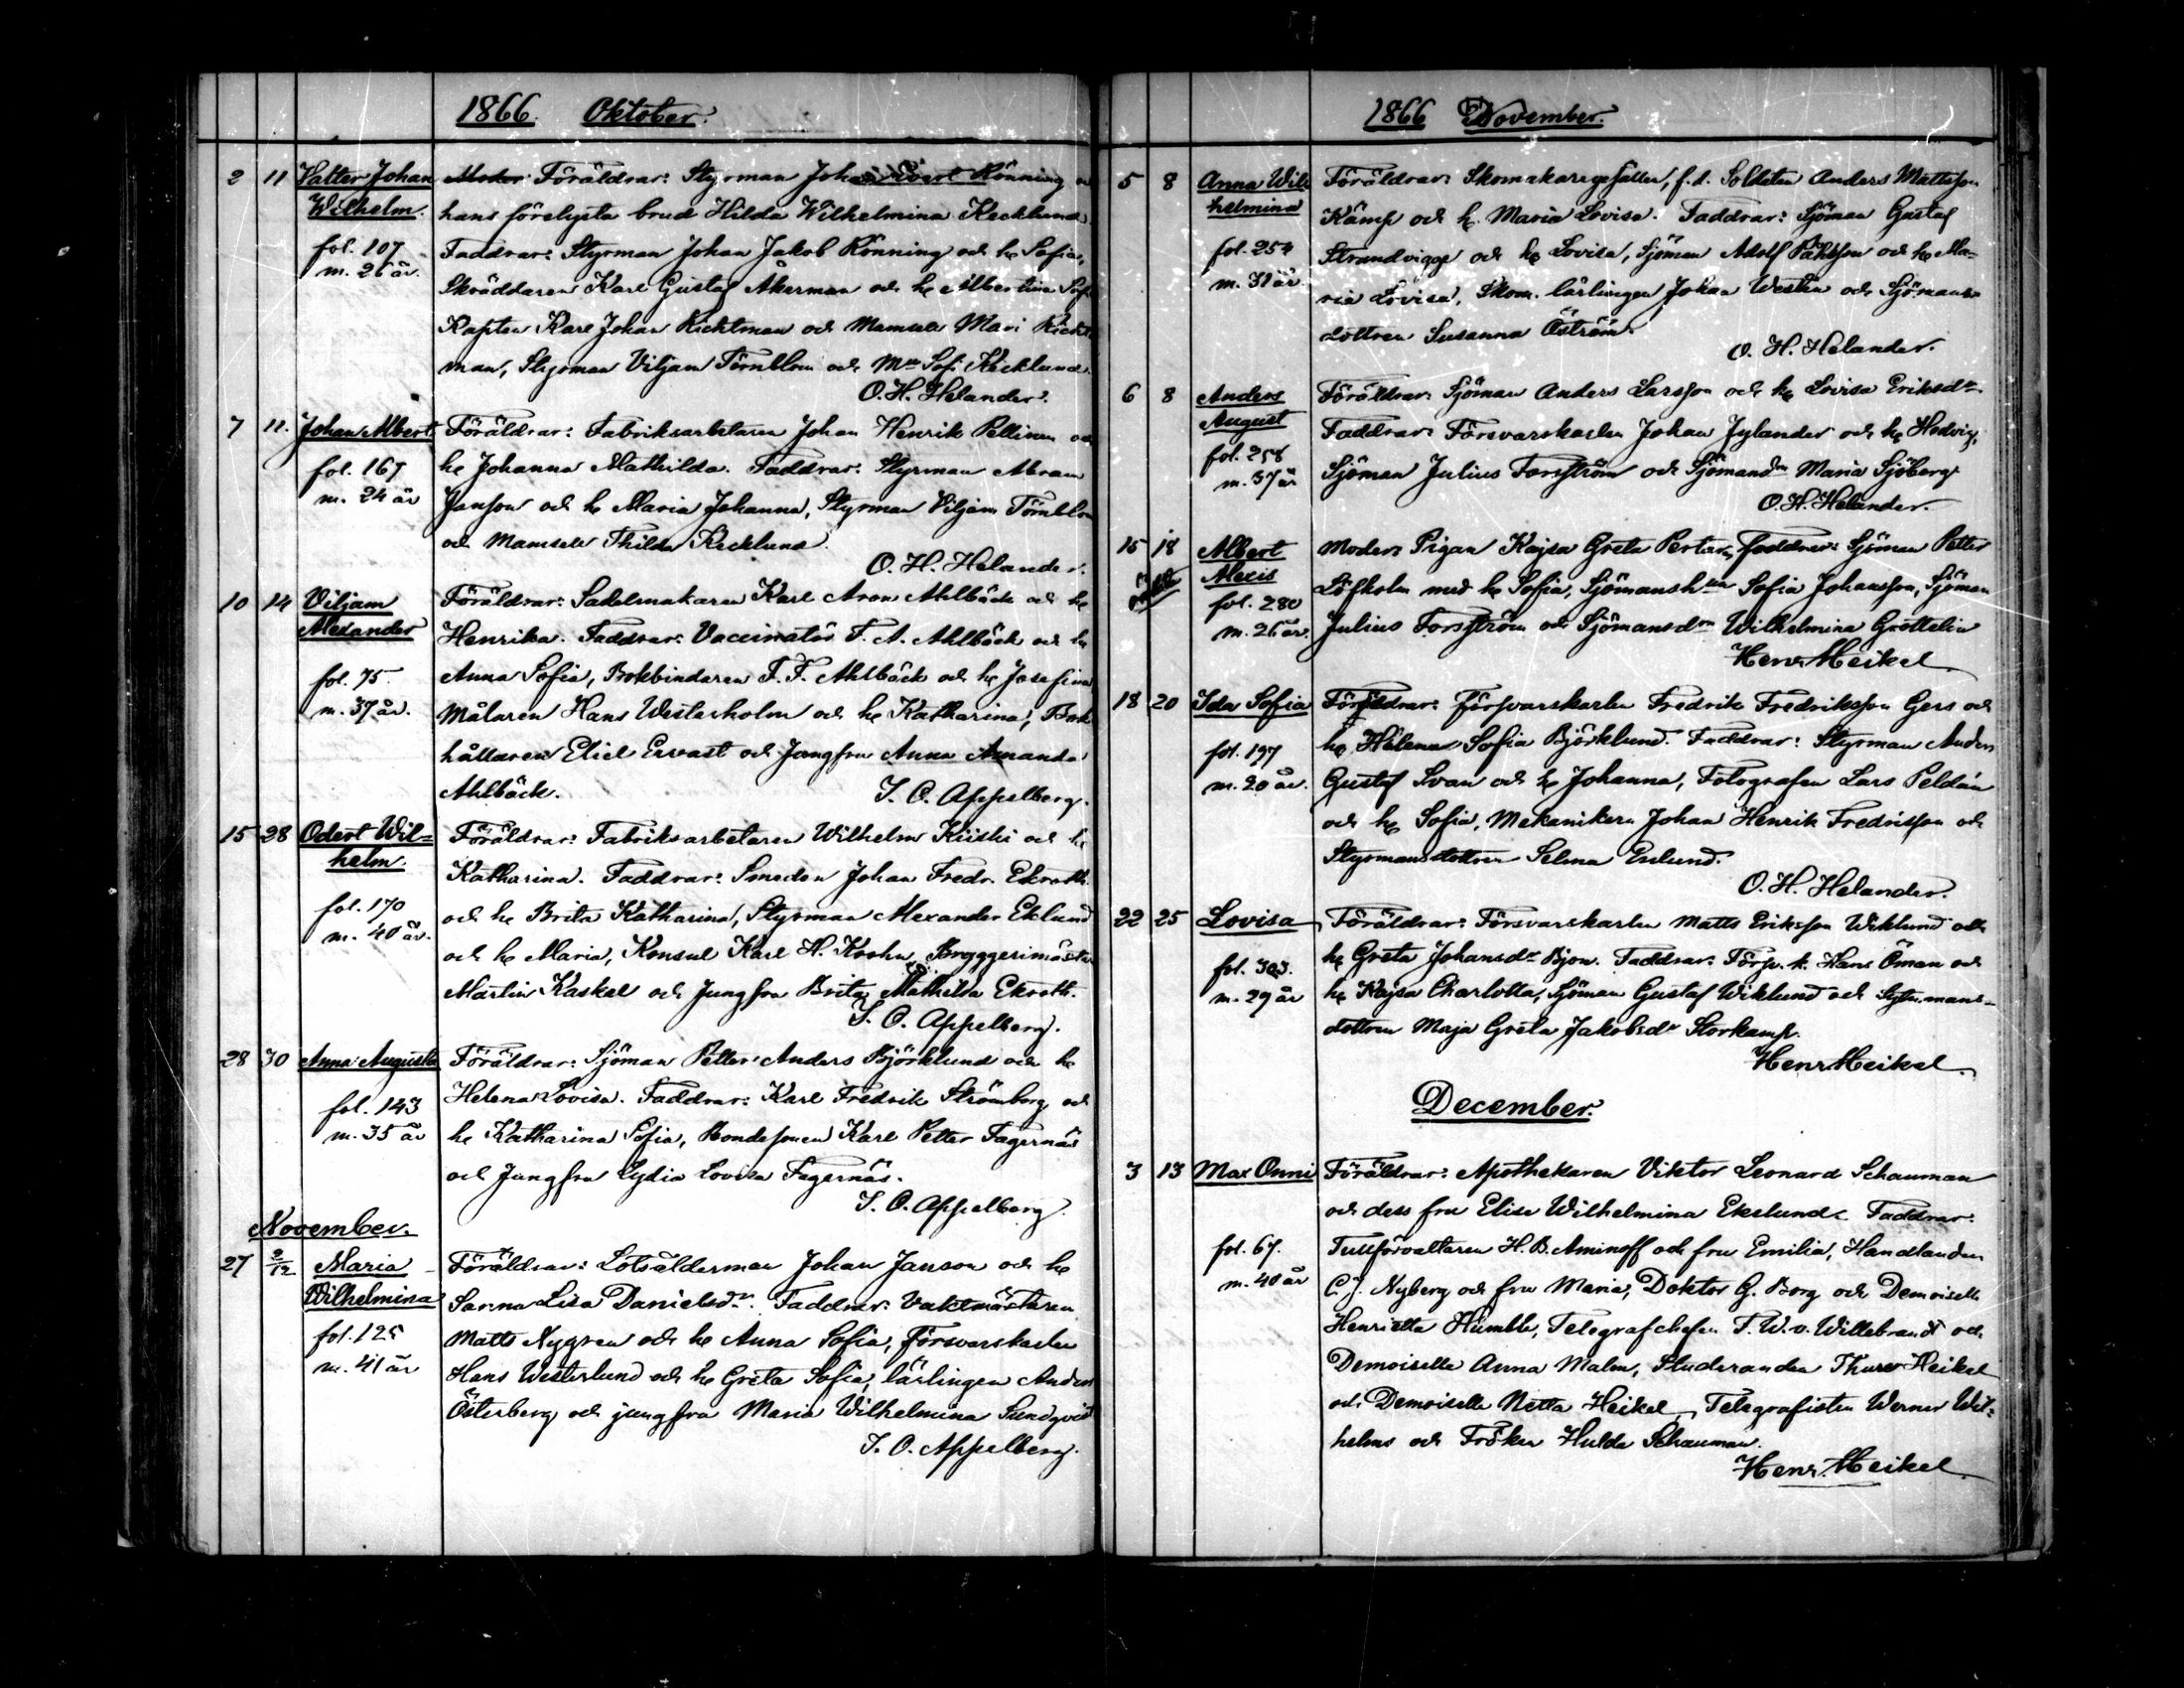 1866. Oktober.
2 11 Valter Johan Moder: Föräldrar: Styrman Johan Evert Könning
Wilhelm. hans förelysta brud Hilda Wilhelmina Kecklund.
fol. 107 Faddrar: Styrman Johan Jakob Könning och h. Sofia,
m. 26 år. Skräddaren Karl Gustaf Åkerman och h. Albertina
Kapten Karl Johan Richtman och Mamsell Mari
man, Styrman Viljam Törnblom och Mll Sofi Kecklund.
O. H. Helander.
7 11. Johan Albert Föräldrar: Fabriksarbetaren Johan Henrik Pellinen och
fol. 167 h. Johanna Mathilda. Faddrar: Styrman Abram
m. 24 år Janson och h. Maria Johanna, Styrman Viljam Törnblom
och Mamsell Thilda Kecklund.
O. H. Helander.
10 14 Viljam Föräldrar: Sadelmakaren Karl Aron Ahlbäck och h.
Alexander Henrika. Faddrar: Vaccinatör F. A. Ahlbäck och h.
fol. 75. Anna Sofia, Bokbindaren F. F. Ahlbäck och h. Josefina
m. 37 år. Målaren Hans Westerholm och h. Katharina, Bok-
hållaren Eliel Ervast och Jungfru Anna Amanda
Ahlbäck.
I. O. Appelberg.
15 28 Odert Wil= Föräldrar: Fabriksarbetaren Wilhelm Kiiski och h.
helm. Katharina. Faddrar: Smeden Johan Fredr. Ekroth
fol. 170 och h. Brita Katharina, Styrman Alexander Eklund
m. 40 år. och h. Maria, Konsul Karl H. Krohn, Bryggerimästar
Martin Kaskel och Jungfru Brita Mathilda Ekroth.
I. O. Appelberg.
28 30 Anna Augusta Föräldrar: Sjöman Petter Anders Björklund och h.
fol. 143 Helena Lovisa. Faddrar: Karl Fredrik Strömberg och
m. 35 år h. Katharina Sofia, Bondesonen Karl Petter Fagernäs
och Jungfru Lydia Lovisa Fagernäs.
I. O. Appelberg.
November.
27 2/12 Maria Föräldrar: Lotsålderman Johan Janson och h.
Wilhelmina Sanna Lisa Danielsdr. Faddrar: Vaktmästaren
fol. 125 Matts Nygren och h. Anna Sofia, Försvarskarlen
m. 41 år Hans Westerlund och h. Greta Sofia, lärlingen Anders
Österberg och jungfru Maria Wilhelmina Sundqvist
I. O. Appelberg.
1866 November.
5 8 Anna Wil- Föräldrar: Skomakaregesällen, f.d. Soldaten Anders Mattsson
helmina Kämp och h. Maria Lovisa. Faddrar: Sjöman Gustaf
fol. 254 Strandvigge och h. Lovisa, Sjöman Adolf Påhlsson och h. Ma-
m. 31 år. ria Lovisa, Skom. lärlingen Johan Westin och Sjömans
dottren Susanna Öström.
O. H. Helander.
6 8 Anders Föräldrar: Sjöman Anders Larsson och h. Lovisa Eriksdr.
August Faddrar: Försvarskarlen Johan Jylander och h. Hedvig,
fol. 258 Sjöman Julius Forsström och Sjömansdn Maria Sjöberg.
m. 37 år
O. H. Helander.
15 18 Albert Moder: Pigan Kajsa Greta Faddrar: Sjöman Petter
Alexis Löfholm med h. Sofia, Sjömansh Sofia Johansson, Sjöman
fol. 280 Julius Forsström och Sjömansdn Wilhelmina Grottelin
m. 26 år.
Henr. Heikel
18 20 Ida Sofia Föräldrar: försvarskarlen Fredrik Fredriksson Gers och
h. Helena Sofia Björklund. Faddrar: Styrman Anders
fol. 197 Gustaf Svan och h. Johanna, Fotografen Lars Peldán
m. 20 år. och h. Sofia, Mekanikern Johan Henrik Fredriksson och
Styrmansdottren Selma Enlund.
O. H. Helander.
22 25 Lovisa Föräldrar: Försvarskarlen Matts Eriksson Wiklund och
fol. 303. h. Greta Johansdr Bjon. Faddrar: Förp. k. Hans Öman och
m. 29 år h. Kajsa Charlotta, Sjöman Gustaf Wiklund och mans-
dottren Maja Greta Jakobsdr Storkamp.
Henr. Heikel
December.
3 13 Max Onni Föräldrar: Apothekaren Viktor Leonard Schauman
och dess fru Elise Wilhelmina Ekelund. Faddrar:
fol. 67. Tullförvaltaren H. B. Aminoff och fru Emilia, Handlanden
m. 40 år C. J. Nyberg och fru Maria, Doktor G. Borg och Demoiselle
Henrietta Humble, Telegrafchefen F. W. v. Willebrandt och
Demoiselle Anna Malm, Studeranden Thure Heikel
och Demoiselle Netta Heikel, Telegrafisten Werner Wil-
helms och Fröken Hulda Schauman.
Henr. Heikel